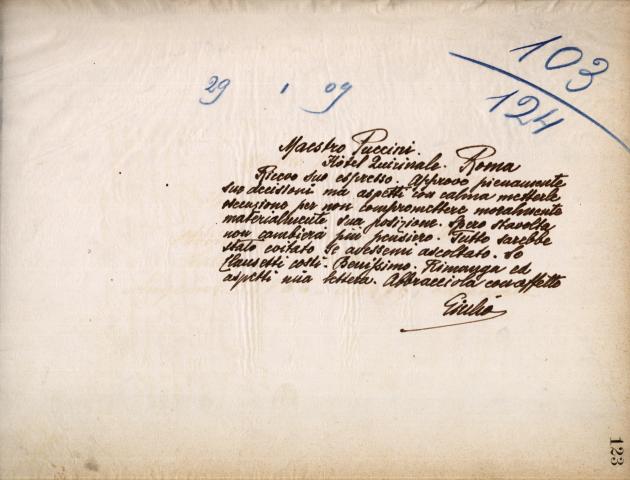 103
124
29 1 09
Maestro Puccini.
Hôtel Quirinale. Roma
Ricevo suo espresso. Approvo pienamente
sue decisioni ma aspetti con calma metterle
esecuzione per non compromettere moralmente
materialmente sua posizione. Spero stavolta
non cambierà più pensiero. Tutto sarebbe
stato evitato se avessemi ascoltato. So
Clausetti costì. Benissimo. Rimanga ed
aspetti mia lettera. Abbracciola con affetto
Giulio
123